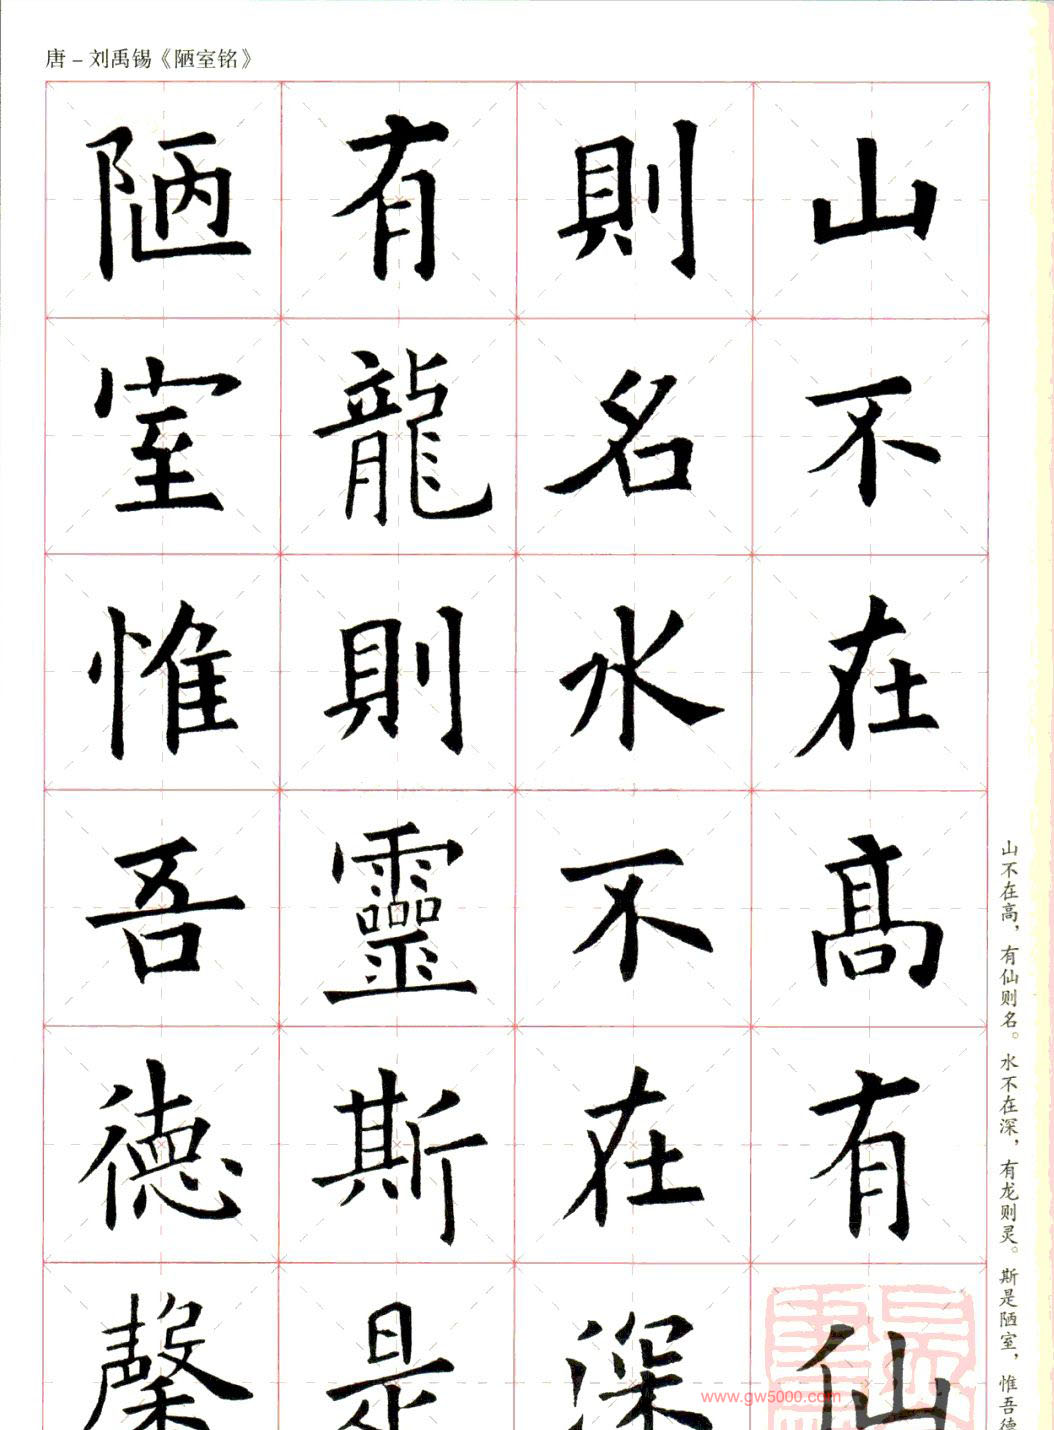 唐－刘禹锡《陋室铭》
山不在高有仙
則名水不在深
有龍則靈斯是
陋室惟吾德馨
山不在高，有仙则名。水不在深，有龙则灵。斯是陋室，惟吾德
www.gw5000.com